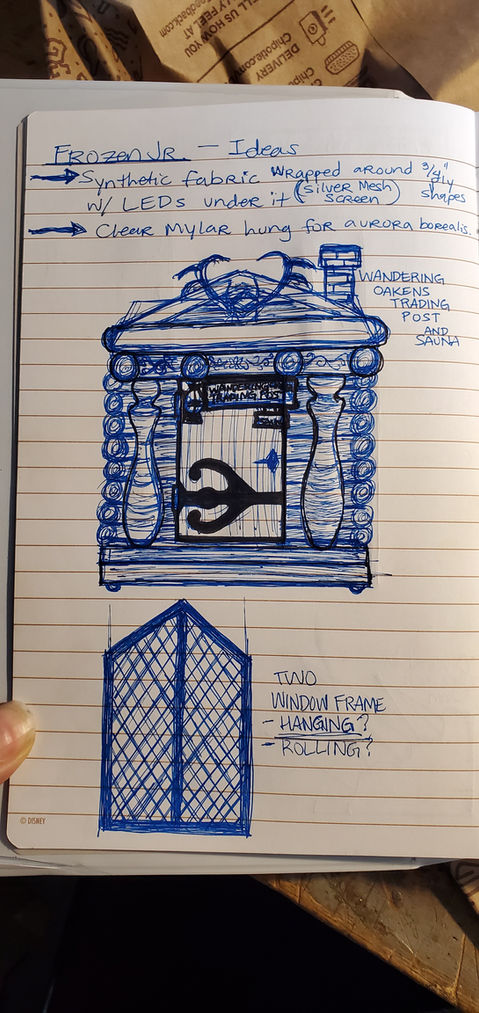 TELL US HOW YOU
FEEL AT
DELIVERY
Chipotle.com
Frozen Jr. - Ideas
→ Synthetic Fabric Wrapped around 3/4" ply shapes
w/ LEDs under it (silver Mesh screen)
→ Clear Mylar hung for aurora borealis.
WANDERING
OAKENS
TRADING
POST
AND
SAUNA
WANDERING
TRADING POST
TWO
WINDOW FRAME
- HANGING?
- ROLLING?
© DISNEY